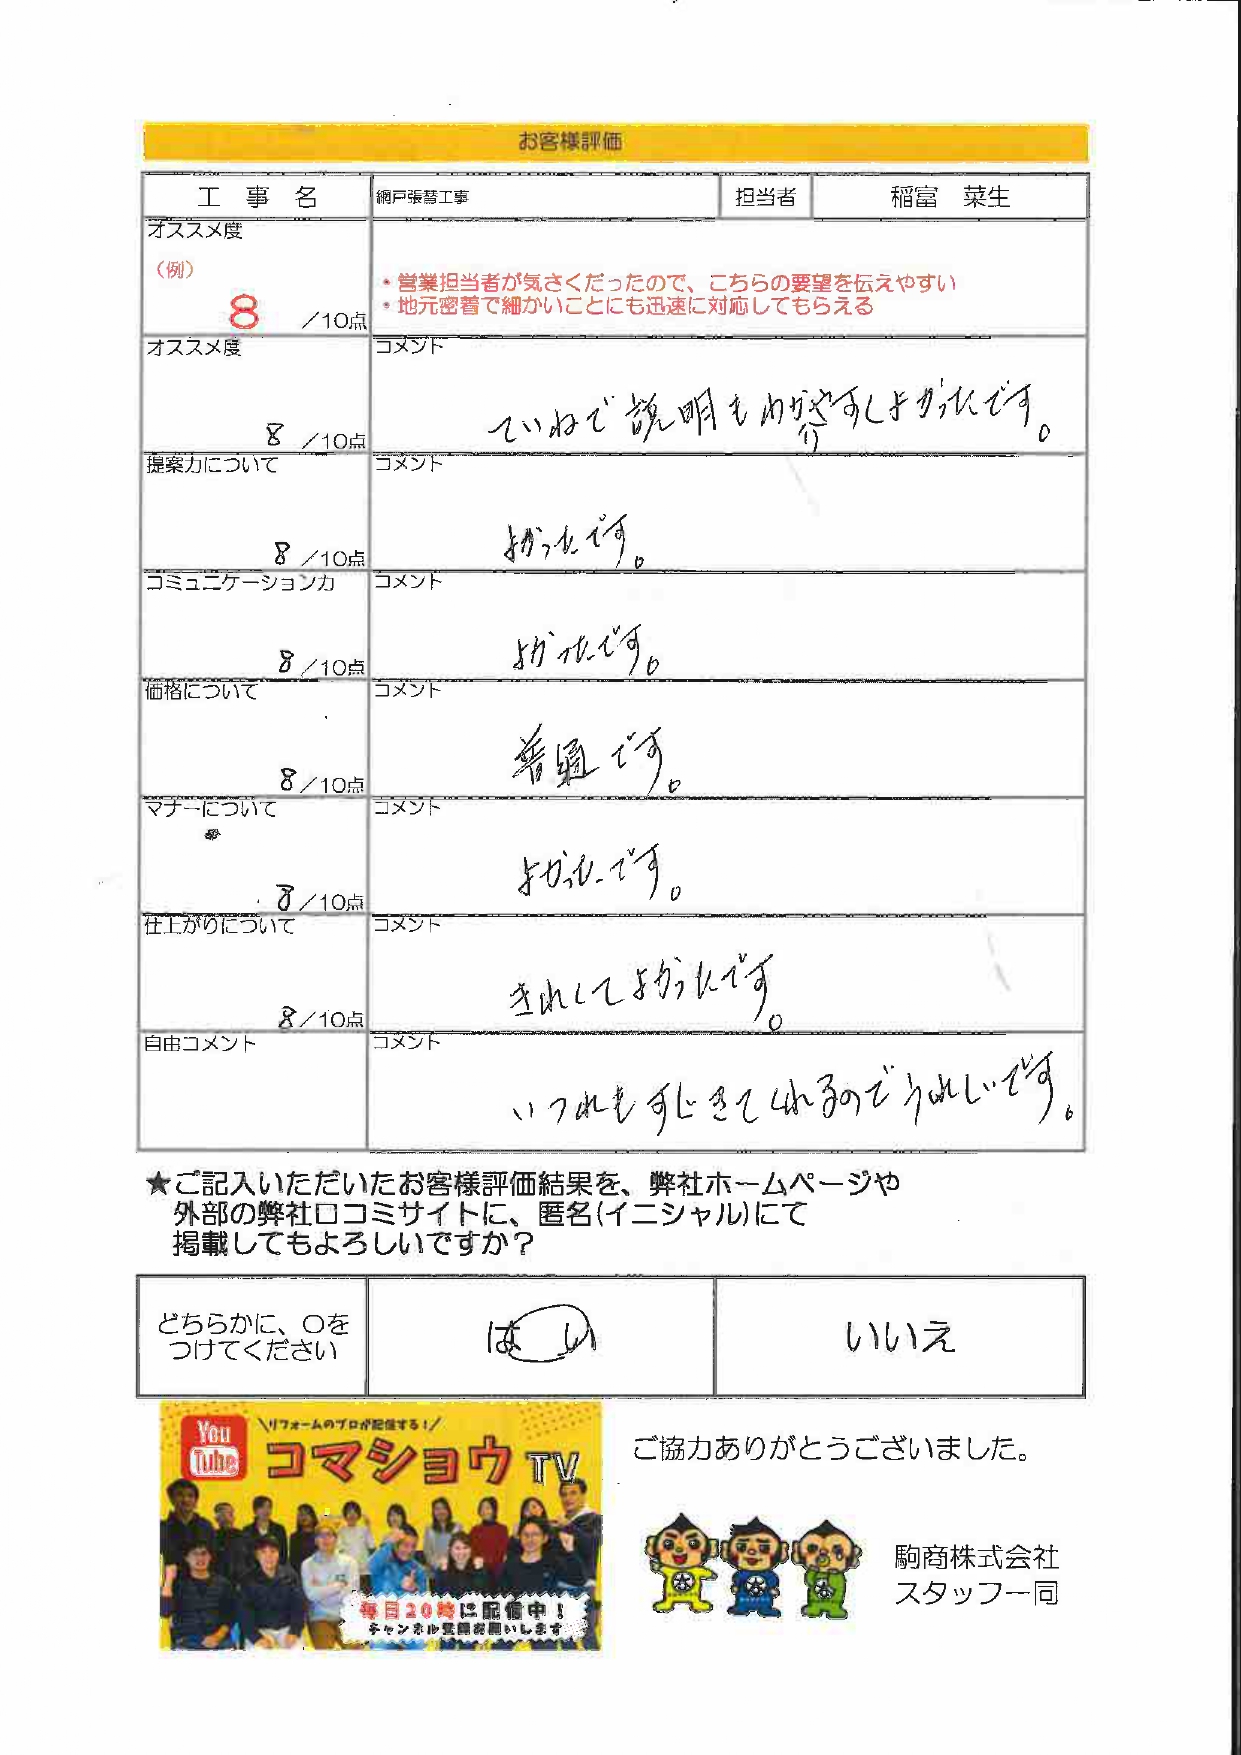 お客様評価
工 事 名 網戸張替工事 担当者 稲富 菜生
オススメ度
（例）
8 ／10点
・営業担当者が気さくだったので、こちらの要望を伝えやすい
・地元密着で細かいことにも迅速に対応してもらえる
オススメ度 コメント
8 ／10点 ていねで説明も よかったです。
提案力について コメント
8 ／10点 よかったです。
コミュニケーション力 コメント
8 ／10点 よかったです。
価格について コメント
8 ／10点 普通です。
マナーについて コメント
8 ／10点 よかったです。
仕上がりについて コメント
8 ／10点 きれくてよかったです。
自由コメント コメント
いつれもすじきてくれるのでうれしいです。
★ご記入いただいたお客様評価結果を、弊社ホームページや
外部の弊社口コミサイトに、匿名(イニシャル)にて
掲載してもよろしいですか？
どちらかに、〇を
つけてください
はい いいえ
You Tube
＼リフォームのプロが配信する！／
コマショウTV
毎日20時に配信中！
チャンネル登録お願いします
ご協力ありがとうございました。
駒商株式会社
スタッフ一同